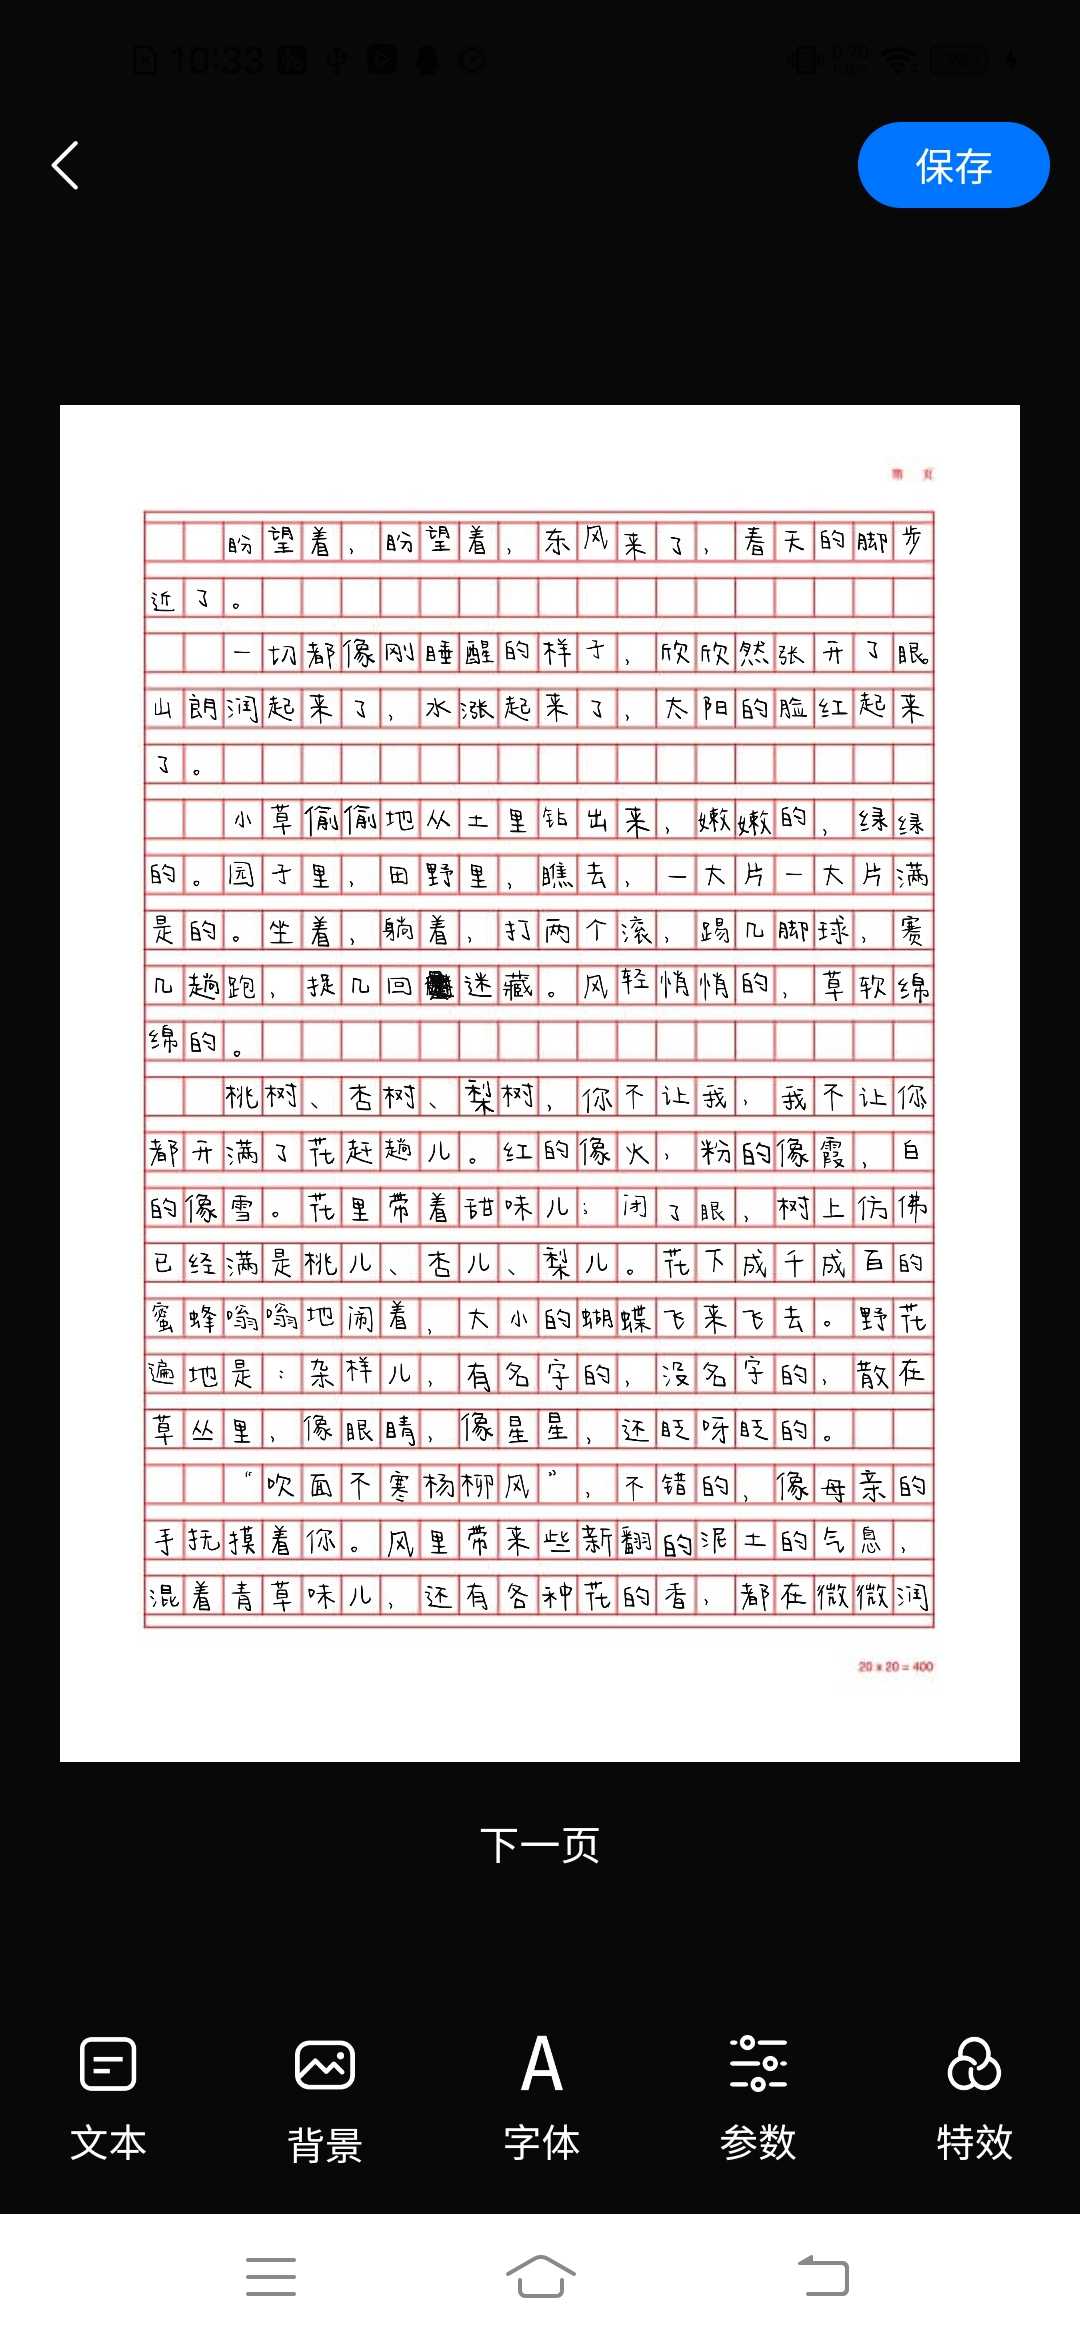 10:33
保存
第 页
盼望着，盼望着，东风来了，春天的脚步
近了。
一切都像刚睡醒的样子，欣欣然张开了眼。
山朗润起来了，水涨起来了，太阳的脸红起来
了。
小草偷偷地从土里钻出来，嫩嫩的，绿绿
的。园子里，田野里，瞧去，一大片一大片满
是的。坐着，躺着，打两个滚，踢几脚球，赛
几趟跑，捉几回迷藏。风轻悄悄的，草软绵
绵的。
桃树、杏树、梨树，你不让我，我不让你，
都开满了花赶趟儿。红的像火，粉的像霞，白
的像雪。花里带着甜味儿；闭了眼，树上仿佛
已经满是桃儿、杏儿、梨儿。花下成千成百的
蜜蜂嗡嗡地闹着，大小的蝴蝶飞来飞去。野花
遍地是：杂样儿，有名字的，没名字的，散在
草丛里，像眼睛，像星星，还眨呀眨的。
“吹面不寒杨柳风”，不错的，像母亲的
手抚摸着你。风里带来些新翻的泥土的气息，
混着青草味儿，还有各种花的香，都在微微润
20x20=400
下一页
文本 背景 字体 参数 特效